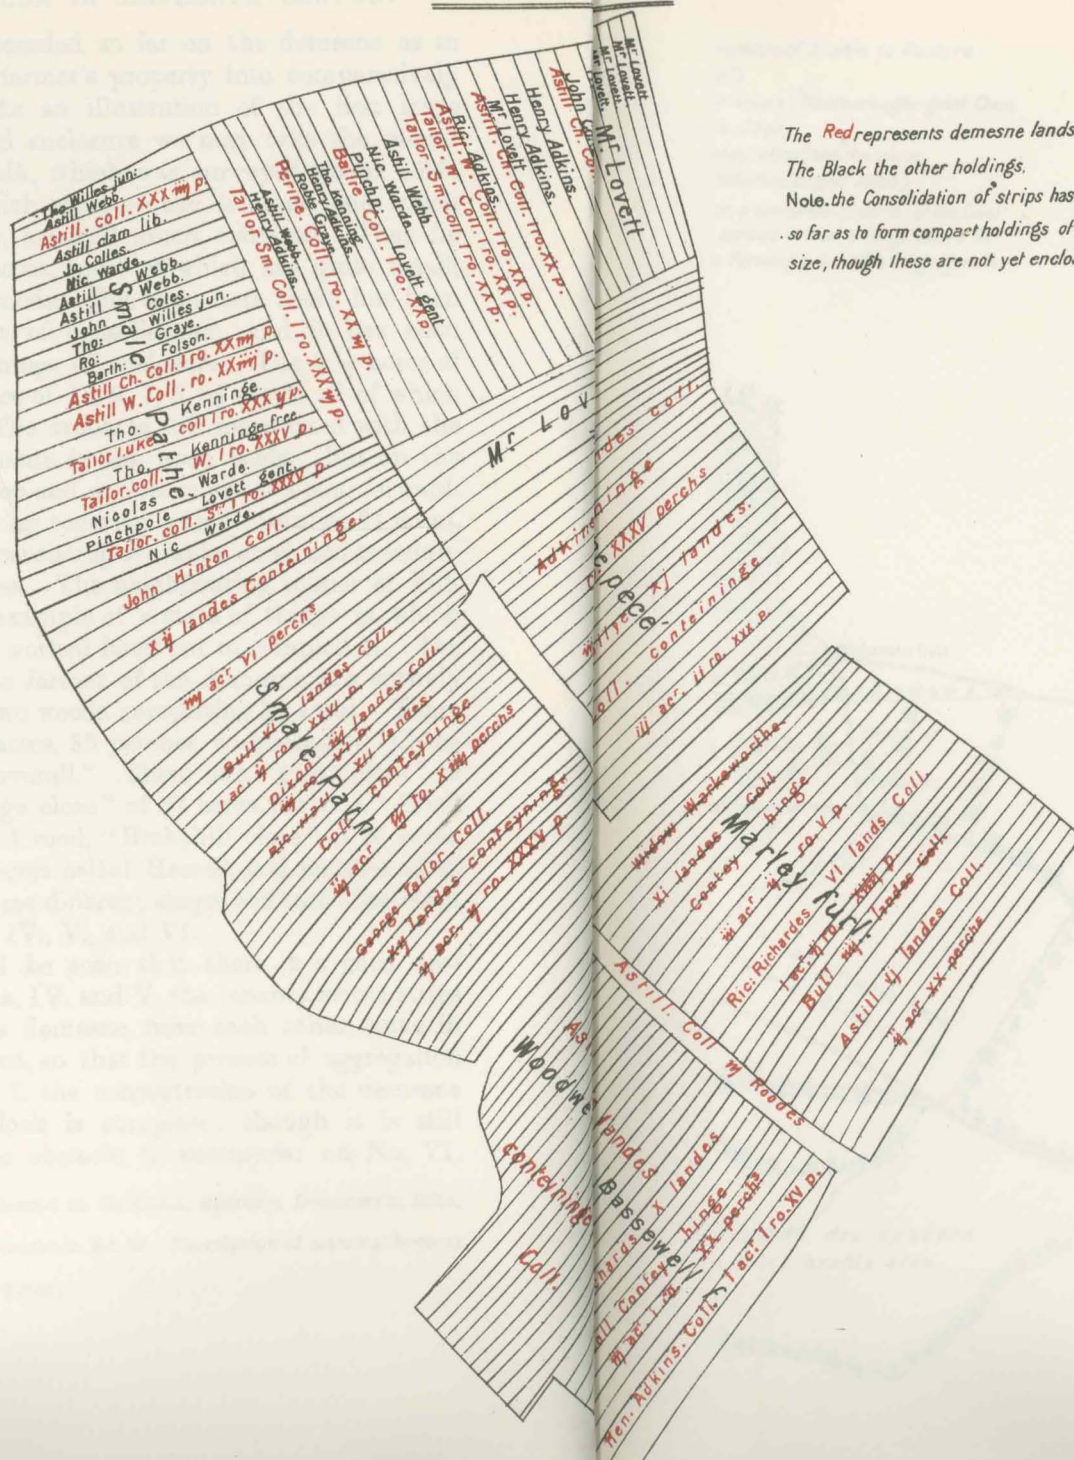 The Red represents demesne lands
The Black the other holdings.
Note. the Consolidation of strips has
so far as to form compact holdings of
size, though these are not yet enclo
Mr Lovett.
Mr Lovett.
Mr Lovett.
Mr Lovett.
Mr Lovett
John Ch. Col
Astill Ch. Co
Henry Adkins.
Henry Adkins.
Mr Lovett
Astill. Ch. Coll. I ro. XX p.
Ric: Adkins.
Astill W. Coll. I ro. XX p.
Tailor. W. Coll. I ro. XX p.
Tailor. Sm. Coll. I ro. XX p.
Astill Webb
Nic Warde.
Pinchpi Lovett gent
Bailie Coll. I ro. XX p.
Tho. Kenning
Henry Adkins.
Robte Graye.
Perine. Coll. I ro. XX iij p.
Astill Webb.
Henry Adkins.
Tailor Sm. Coll. I ro. XXX iij p.
Tho Willes jun:
Astill Webb.
Astill. coll. XXX iij p.
Astill clam lib.
Jo. Colles.
Nic Warde.
Astill Webb.
Astill Webb.
John Coles.
Tho: Willes jun.
Ro: Graye.
Barth: Folson.
Astill Ch. Coll. I ro. XX iiij p.
Astill W. Coll. ro. XX iiij p.
Tho. Kenninge.
Tailor Luke coll I ro. XXX ij p.
Tho. Kenninge free
Tailor. coll. W. I ro. XXXV p.
Nicolas Warde.
Pinchpole Lovett gent.
Tailor. coll. Sm I ro. XXXV p.
Nic Warde.
Smale Pathe
John Hinton Coll.
X ij landes Conteininge.
iij acr. VI perchs
Smale Patch
Bull VI landes Coll.
I ac. ij ro. XXVI p.
Dixon iij landes Coll.
iij ro. VI p.
XII landes.
Coll conteyninge
iij acr ij ro. X iiij perchs
George Tailor Coll.
X ij landes conteyninge
acr. ij ro. XXXV p.
Mr Lov
ndes coll.
Adkin inge
XXXV perchs
pece
Xj landes.
oll. conteininge
iij ac. II ro. XXX p.
Widow Warkeworthe.
XI landes Coll
Contey hinge
iii acr ij ro. V p.
Marley furl:
Ric: Richardes VI lands Coll.
I ac. ij ro. XIIIj p
Bull iiij landes Coll.
Astill Vj landes Coll.
ij acr XX perchs
Astill. Coll iij Roodes
As
Woodwe
landes
conteyninge
Coll.
Bassewell f.
chards X landes
all Contey hinge
iij ac. I ro. XX perchs
Hen. Adkins. Coll. I acr I ro. XV p.